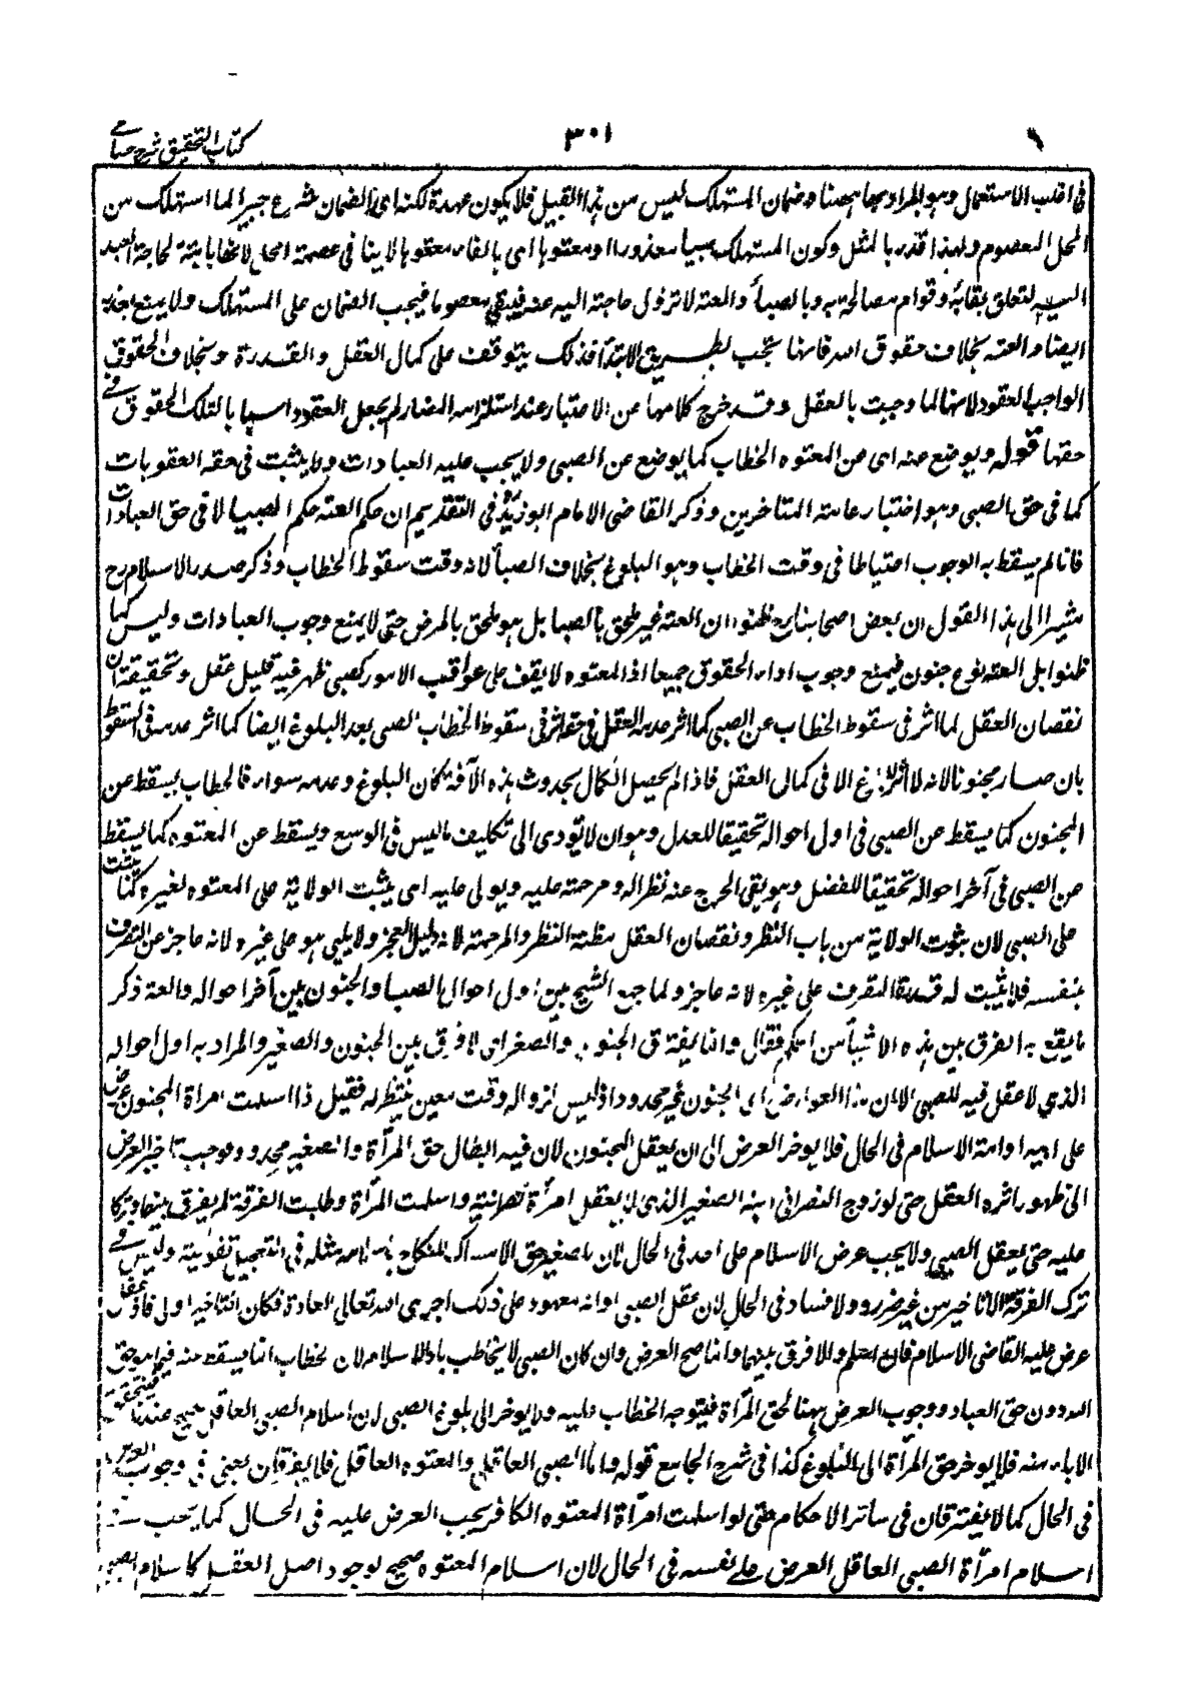 كتاب التحقيق شرح حسامى
٣٠١
فى اغلب الاستعمال وهو المراد بها ههنا وضمان المستهلك ليس من هذا القبيل فلا يكون عهدة لكنه اى الضمان شرع جبرا لما استهلك من
المحل المعصوم ولهذا قدر بالمثل وكون المستهلك صبيا معذورا او معتوها اى بالغا معتوها لا ينافى عصمة المحل لانها ثابتة لحاجة العبد
اليه لتعلق بقائه وقوام مصالحه به وبالصبا والعته لا تزول حاجته اليه عنه فيبقى معصوما فيجب الضمان على المستهلك ولا يمتنع بعذر
الصبا والعته بخلاف حقوق الله فانها تجب بطريق الابتداء فذلك يتوقف على كمال العقل والقدرة وبخلاف الحقوق
الواجبة بالعقود لانها لما وجبت بالعقل وقد خرج كلامهما عن الاعتبار عند استلزامه المضار لم يجعل العقود اسبابا لتلك الحقوق فى
حقهما قوله ويوضع عنه اى عن المعتوه الخطاب كما يوضع عن الصبى ولا يجب عليه العبادات ولا يثبت فى حقه العقوبات
كما فى حق الصبى وهو اختيار عامة المتاخرين وذكر القاضى الامام ابو زيد فى التقويم ان حكم العته حكم الصبا الا فى حق العبادات
فانا لم يسقط به الوجوب احتياطا فى وقت الخطاب وهو البلوغ بخلاف الصبا لانه وقت سقوط الخطاب وذكر صدر الاسلام رح
مشيرا الى هذا القول ان بعض اصحابنا رح ظنوا ان العته غير ملحق بالصبا بل هو ملحق بالمرض حتى لا يمنع وجوب العبادات وليس كما
ظنوا بل العته نوع جنون فيمنع وجوب اداء الحقوق جميعا اذ المعتوه لا يقف على عواقب الامور كصبى ظهر فيه قليل عقل وتحقيقه ان
نقصان العقل لما اثر فى سقوط الخطاب عن الصبى كما اثر عدم العقل فى حقه اثر فى سقوط الخطاب بعد البلوغ ايضا كما اثر عدمه فى السقوط
بان صار مجنونا لانه لا اثر للبلوغ الا فى كمال العقل فاذا لم يحصل الكمال بحدوث هذه الآفة كان البلوغ وعدمه سواء فالخطاب يسقط عن
المجنون كما يسقط عن الصبى فى اول احواله تحقيقا للعدل وهو ان لا يؤدى الى تكليف ما ليس فى الوسع ويسقط عن المعتوه كما يسقط
عن الصبى فى آخر احواله تحقيقا للفضل وهو نفى الحرج عنه نظرا له ومرحمة عليه ويولى عليه اى يثبت الولاية على المعتوه لغيره كما يثبت
على الصبى لان ثبوت الولاية من باب النظر ونقصان العقل مظنة النظر والمرحمة لانه دليل العجز ولا يلى هو على غيره لانه عاجز عن التصرف
بنفسه فلا يثبت له قدرة التصرف على غيره لانه عاجز ولما جمع الشيخ بين اول احوال الصبا والجنون وبين آخر احواله والعته ذكر
ما يقع به الفرق بين هذه الاشياء من الحكم فقال وانما يفترق الجنون والصغر اى لا فرق بين الجنون والصغير والمراد به اول احواله
الذى لا عقل فيه للصبى الا ان هذا العوارض اى الجنون غير محدود اذ ليس لزواله وقت معين ينتظر له فقيل اذا اسلمت امرأة المجنون عرض
على ابيه او امه الاسلام فى الحال فلا يوخر العرض الى ان يعقل المجنون لان فيه ابطال حق المرأة والصغير محدود فوجب تاخير العرض
الى ظهور اثره العقل حتى لو زوج النصرانى ابنه الصغير الذى لا يعقل امرأة نصرانية واسلمت المرأة وطلبت الفرقة لم يفرق بينهما ويتركا
عليه حتى يعقل الصبى ولا يجب عرض الاسلام على احد فى الحال لان للصغير حق الامساك للنكاح باسلام مثله فى التعجيل تفويته وليس فى
ترك الفرقة الا تاخير من غير ضرر ولا فساد فى الحال لان عقل الصبى اوانه معهود على ذلك اجرى الله تعالى العادة فكان التاخير اولى فاذا عقل
عرض عليه القاضى الاسلام فان اسلم والا فرق بينهما وانما صح العرض وان كان الصبى لا يخاطب باداء الاسلام لان الخطاب انما يسقط عنه فيما هو حق
الله دون حق العباد ووجوب العرض ههنا لحق المرأة فيتوجه الخطاب عليه ولا يوخر الى بلوغ الصبى لان اسلام الصبى العاقل صحيح عندنا فيتحقق
الاباء منه فلا يوخر حق المرأة الى البلوغ كذا فى شرح الجامع قوله واما الصبى العاقل والمعتوه العاقل فلا يفترقان يعنى فى وجوب العرض
فى الحال كما لا يفترقان فى سائر الاحكام حتى لو اسلمت امرأة المعتوه الكافر يجب العرض عليه فى الحال كما يجب
اسلام امرأة الصبى العاقل العرض على نفسه فى الحال لان اسلام المعتوه صحيح لوجود اصل العقل كاسلام الصبى